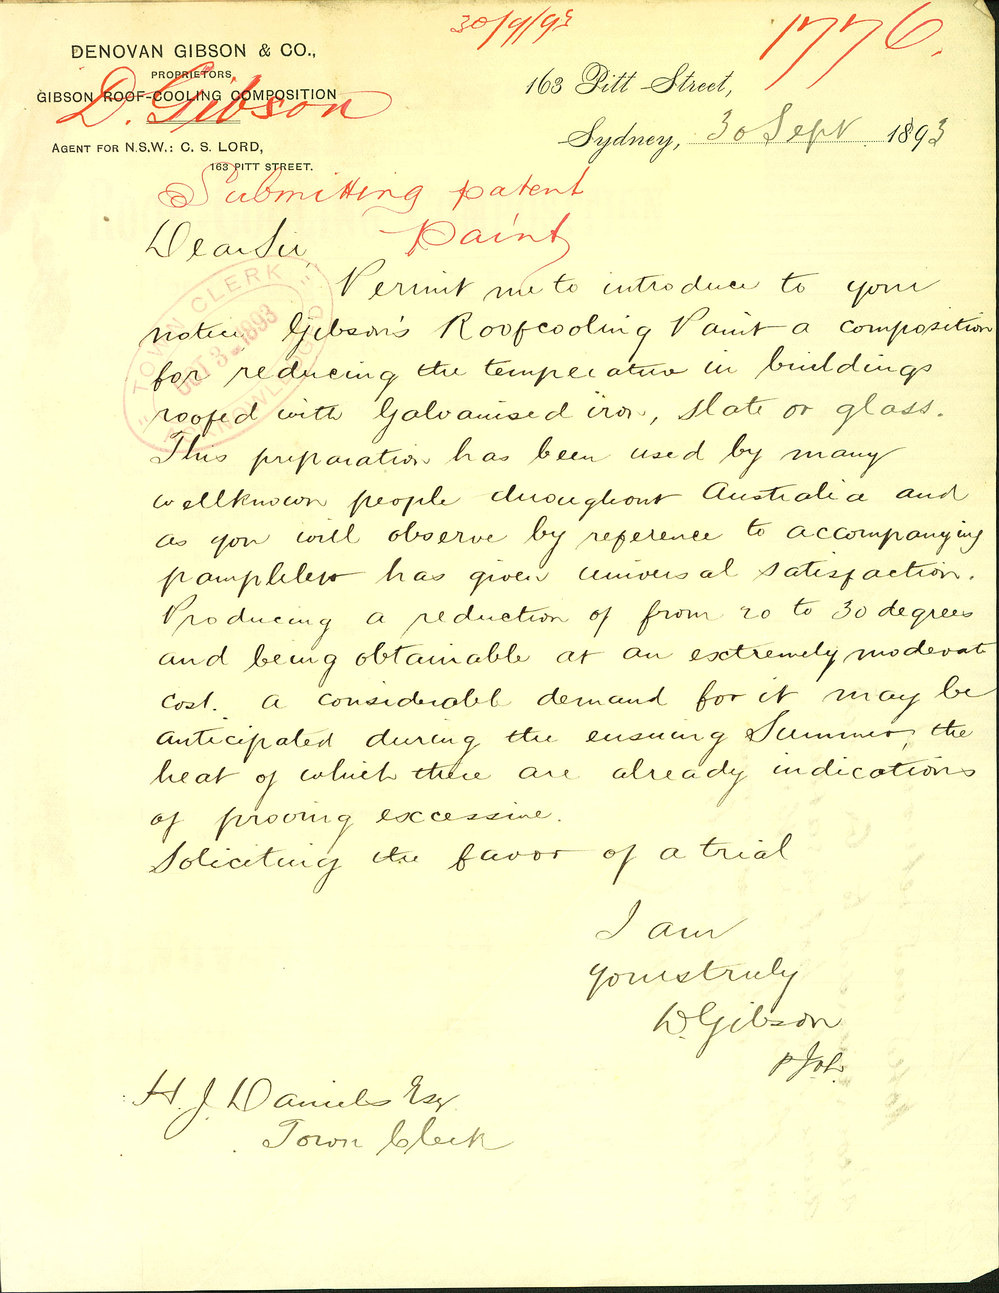 30/9/93
1776.
DENOVAN GIBSON & CO.,
PROPRIETORS
GIBSON ROOF-COOLING COMPOSITION
D. Gibson
AGENT FOR N.S.W.: C. S. LORD,
163 PITT STREET.
163 Pitt Street,
Sydney, 30 Sept 1893
Submitting patent
Paint
Dear Sir
"TOWN CLERK"
OCT 3 1893
ACKNOWLEDGED
Permit me to introduce to your
notice Gibson's Roofcooling Paint a composition
for reducing the temperature in buildings
roofed with Galvanised iron, slate or glass.
This preparation has been used by many
wellknown people throughout Australia and
as you will observe by reference to accompanying
pamphlets has given universal satisfaction.
Producing a reduction of from 20 to 30 degrees
and being obtainable at an extremely moderate
cost. a considerable demand for it may be
anticipated during the ensuing Summer, the
heat of which there are already indications
of proving excessive.
Soliciting the favor of a trial
I am
yours truly
D. Gibson
H. J. Daniels Esq
Town Clerk